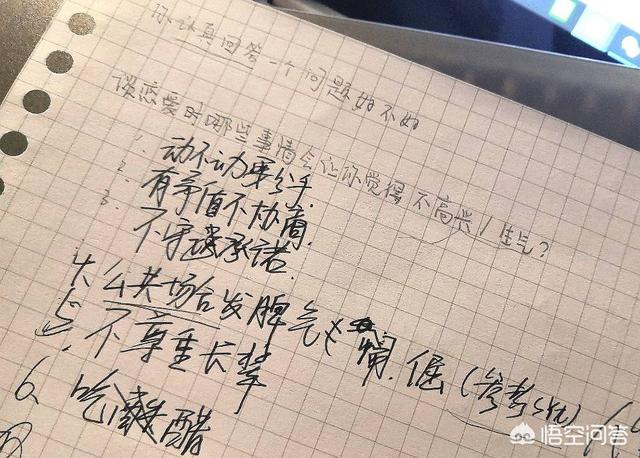 你认真回答一个问题好不好
谈恋爱时哪些事情会让你觉得不高兴/生气？
1. 动不动要分手.
2. 有争值不协商.
3. 不守承诺.
4. 公共场合发脾气
5. 不尊重长辈
6、吃醋
悟空问答